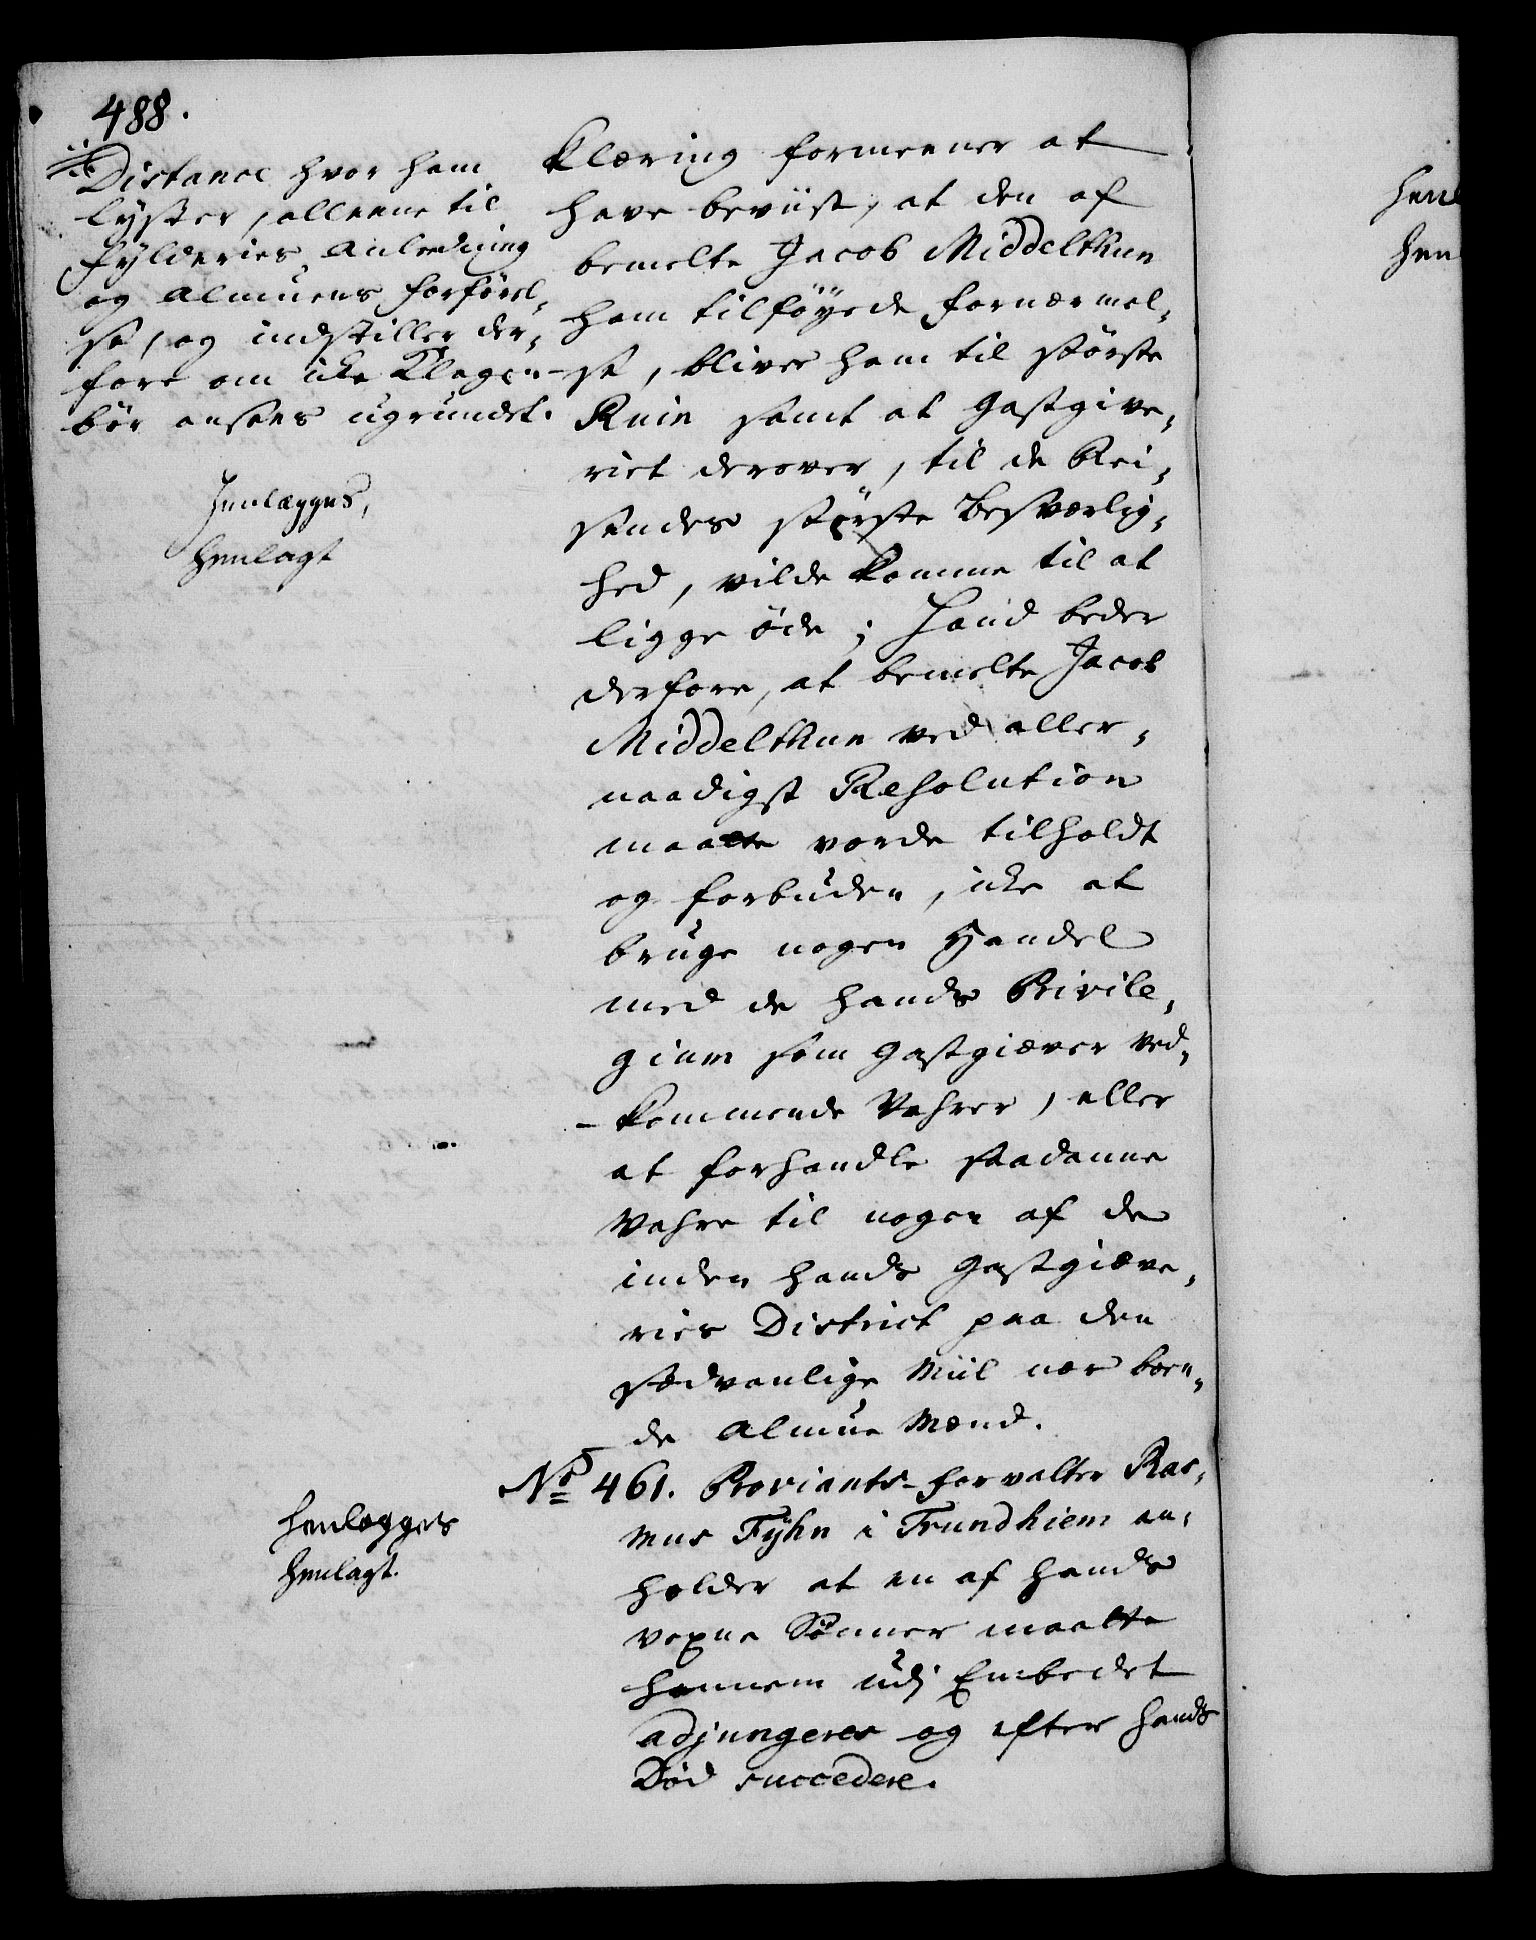 488.
Distance hvor ham
lyster, alleene til
fylderies Anledning
og Almuens forförel-
se, og indstiller der-
fore om icke Klagen
bör ansees ugrundet.
Henlægges,
henlagt
klæring formeener at
have beviist, at den af
bemelte Jacob Middelthun
ham tilföyede fornærmel-
se, bliver ham til störste
Ruin samt at Gastgive-
riet derover, til de Rei-
sendes störste besværlig-
hed, vilde komme til at
ligge öde; Hand beder
derfore, at bemelte Jacob
Middelthun ved aller-
naadigst Resolution
maatte vorde tilholdt
og forbuden, icke at
bruge nogen Handel
med de hands Privile-
gium som Gastgiæver ved-
kommende Vahrer, eller
at forhandle saadanne
Vahre til nogen af de
inden hands Gastgiæve-
ries District paa den
sædvanlige Miil nær boen-
de Almue Mænd.
No 461. Proviants-forvalter Ras-
mus Fyhn i Trundhiem an-
holder at en af hands
voxne Sönner maatte
hannem udj Embedet
adjungeres og efter hands
Död succedere.
henlægges
henlagt.